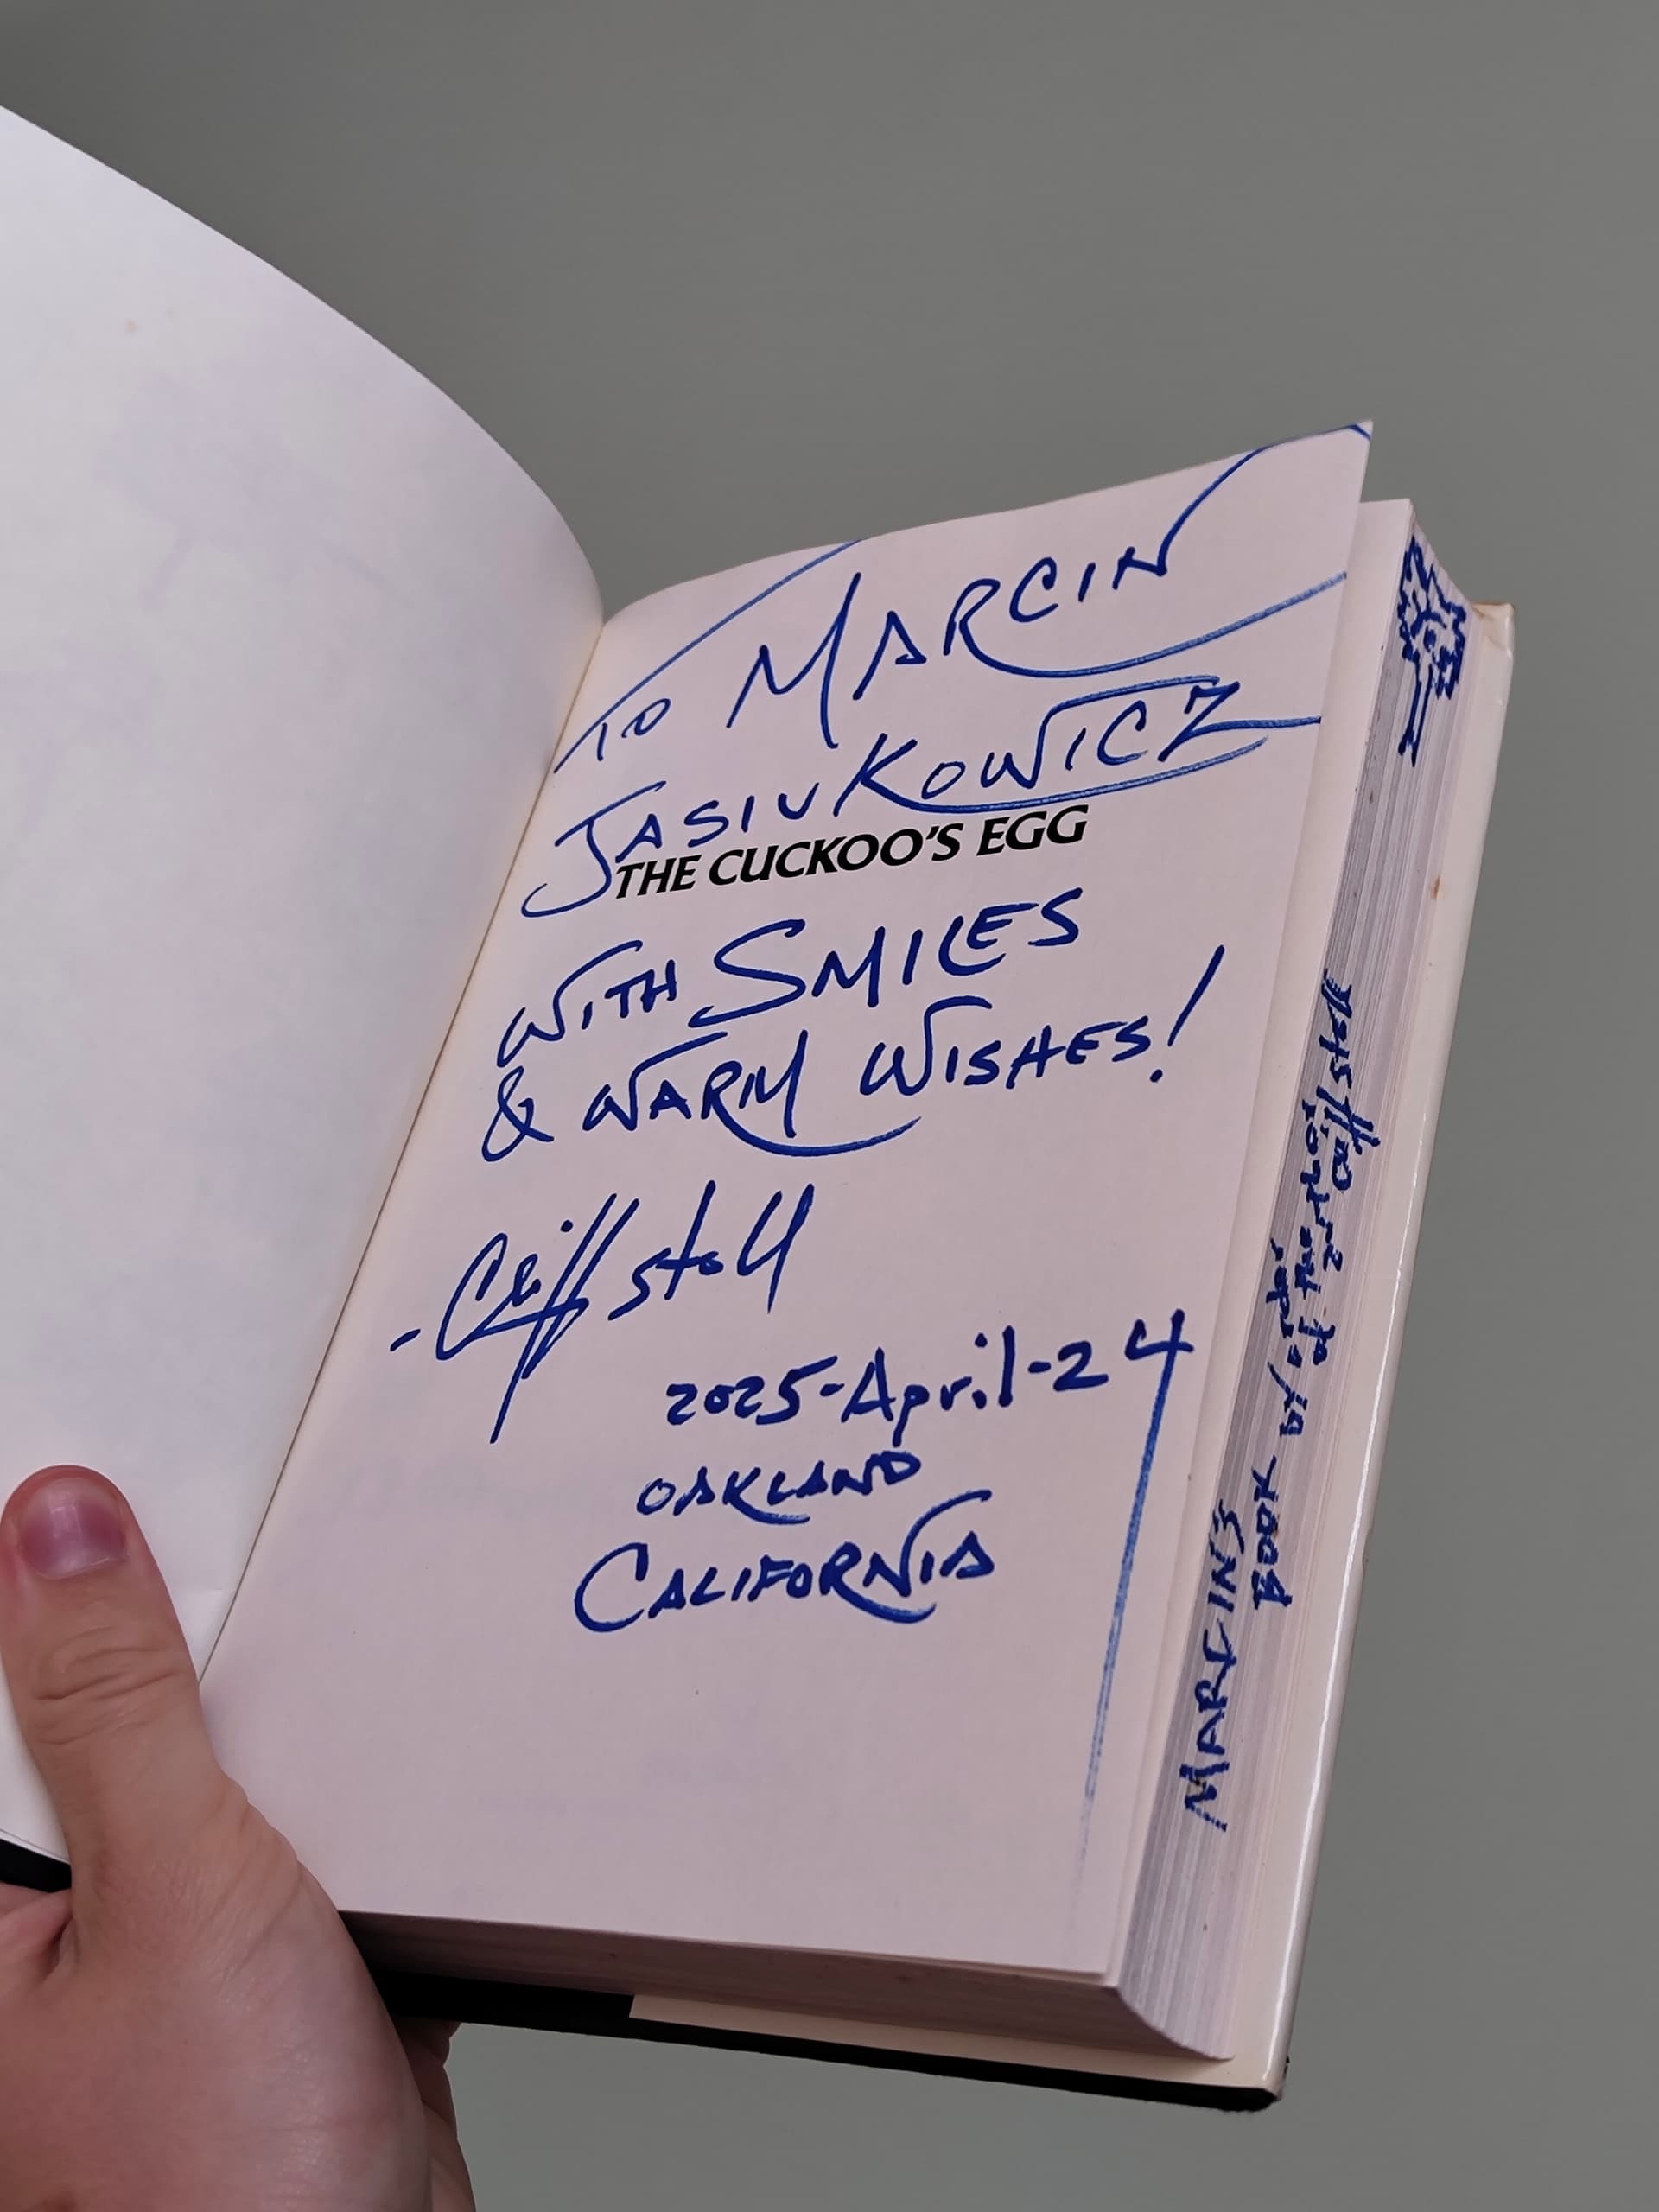 TO MARCIN
JASIUKOWICZ
THE CUCKOO'S EGG
WITH SMILES
& WARM WISHES!
-Cliff Stoll
2025-April-24
OAKLAND
CALIFORNIA
MARCIN'S
BOOK